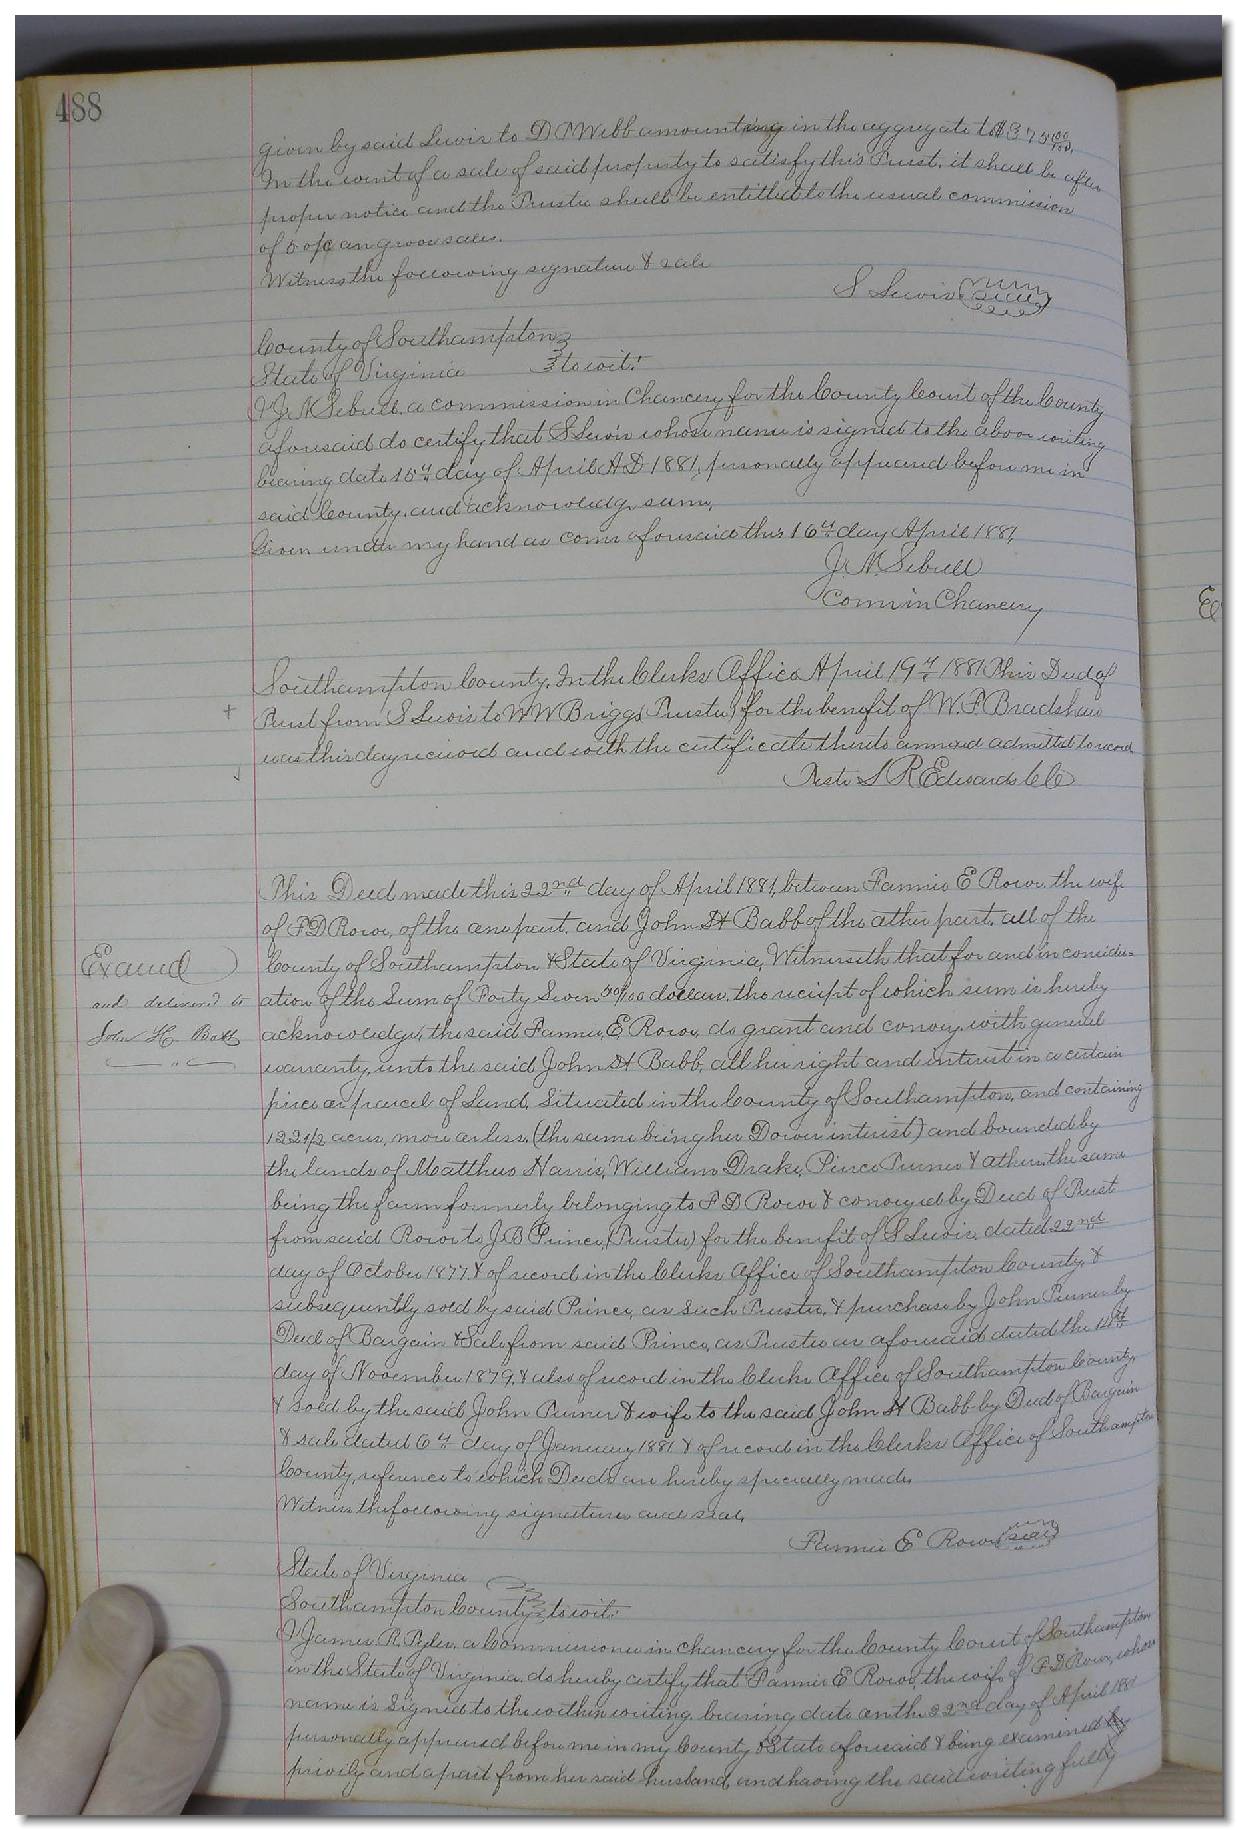 488
given by said Lewis to D N Webb amounting in the aggregate to $375 00/100.
In the event of a sale of said property to satisfy this Trust, it shall be after
proper notice and the Trustee shall be entitled to the usual commission
of 5 o/c on gross sales.
Witness the following signature & seale
S Lewis seal
County of Southampton
State of Virginia to wit:
I J. N. Sebrell, a commission in Chancery for the County Court of the County
aforesaid do certify that S Lewis whose name is signed to the above writing
bearing date 15th day of April A D 1881, personally appeared before me in
said County, and acknowledg same,
Given under my hand as Comr aforesaid this 16th day April 1881,
J. N. Sebrell
Comr in Chancery
Southampton County. In the Clerks Office April 19th 1881 This Deed of
Trust from S Lewis to W W Briggs (Trustee) for the benefit of W. P. Bradshaw
was this day recieved and with the certificate thereto annexed admitted to record
Teste L R Edwards Clk
This Deed made this 22nd day of April 1881, between Fannie E Rowe the wife
of F D Rowe, of the one part, and John H Babb of the other part, all of the
County of Southampton & State of Virginia, Witnesseth that for and in consider-
ation of the Sum of Forty Seven 50/100 dollars, the reciept of which sum is hereby
acknowledge, the said Fannie E Rowe, do grant and convey, with general
warranty, unto the said John H Babb, all her right and interest in a certain
piece or parcel of Land, Situated in the County of Southampton, and containing
122 1/2 acres, more or less, (the same being her Dower interest) and bounded by
the lands of Matthew Harris, William Drake, Pierce Turner & others, the same
being the farm formerly belonging to F D Rowe & conveyed by Deed of Trust
from said Rowe to J B Prince, (Trustee) for the benefit of S Lewis, dated 22nd
day of October 1877, & of record in the Clerks Office of Southampton County, &
subsequently sold by said Prince, as such Trustee, & purchase by John Turner by
Deed of Bargain & Sale from said Prince, as Trustee as aforesaid dated the
day of November 1879, & also of record in the Clerks Office of Southampton County,
& sold by the said John Turner & wife to the said John H Babb by Deed of Bargain
& sale dated 6th day of January 1881 & of record in the Clerks Office of Southampton
County, reference to which Deeds are hereby specially made,
Witness the following signatures and seal,
Fannie E Rowe seal
Examd
and delivered to
John H. Babb
State of Virginia
Southampton County to wit:
I James R. Pyler, a Commissioner in chancery for the County Court of Southampton
in the State of Virginia, do hereby certify that Fannie E Rowe, the wife of F D Rowe, whose
name is Signed to the within writing bearing date on the 22nd day of April 1881
personally appeared before me in my County & State aforesaid & being examined by
privily and apart from her said husband, and having the said writing fully